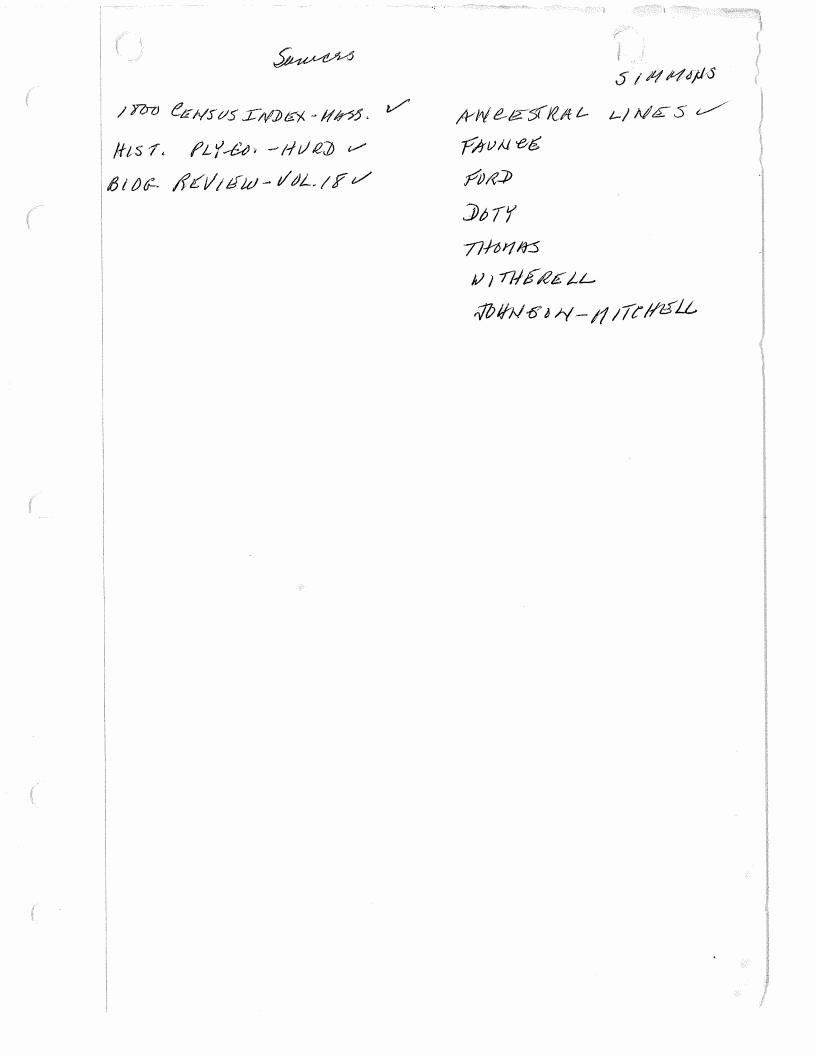 Sources
SIMMONS
1800 CENSUS INDEX - MASS. ✓
HIST. PLY-CO. - HURD ✓
BIOG. REVIEW - VOL. 18 ✓
ANCESTRAL LINES ✓
FAUNCE
FORD
DOTY
THOMAS
WITHERELL
JOHNSON - MITCHELL